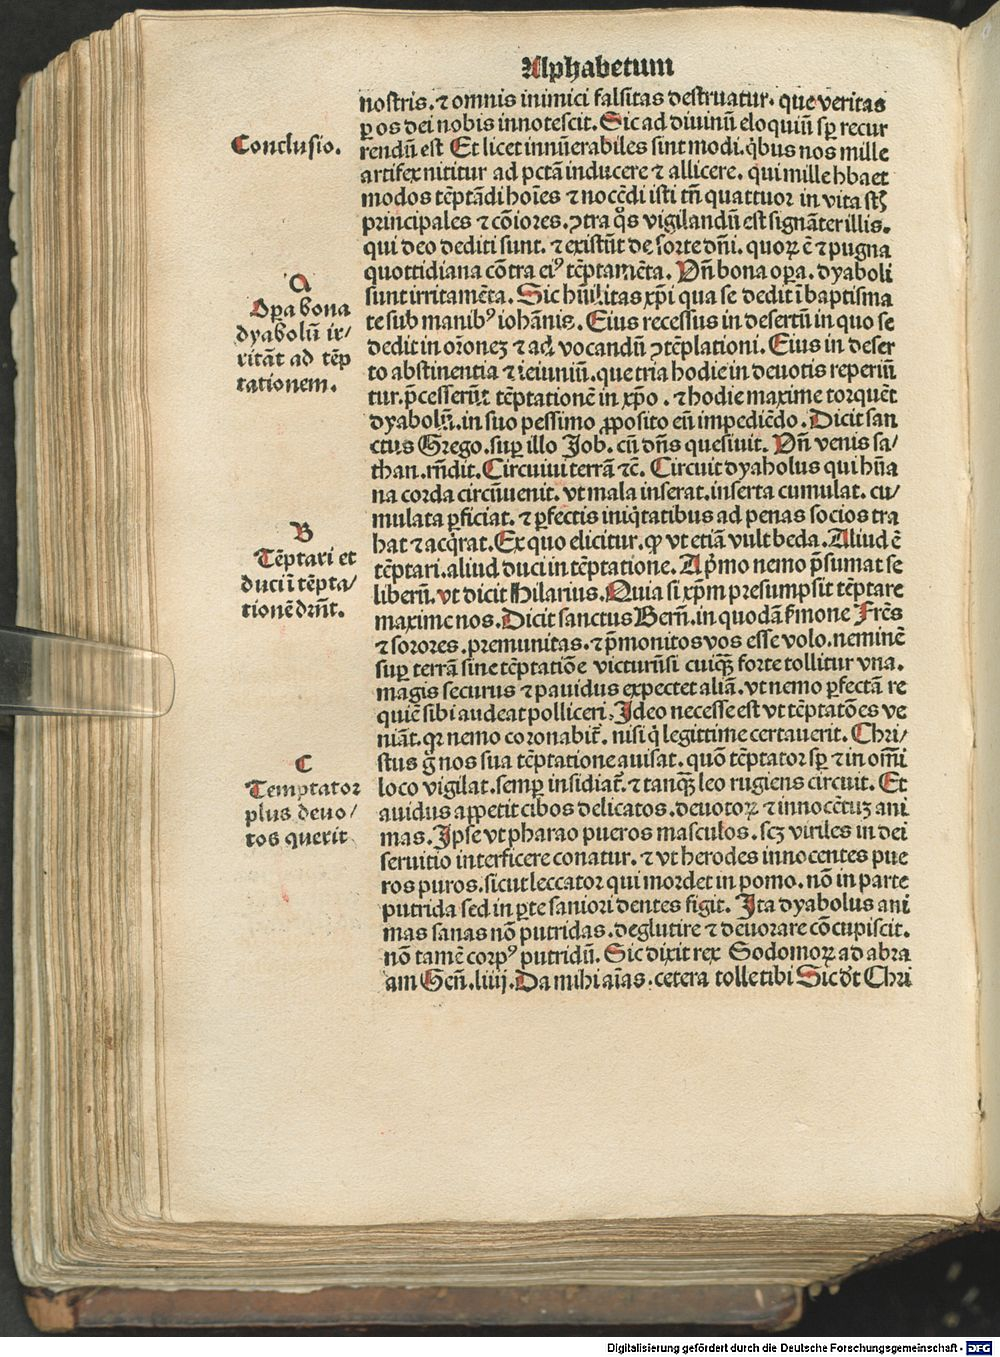 Alphabetum
nostris. ⁊ omnis inimici falsitas destruatur. que veritas
ꝑ os dei nobis innotescit. Sic ad diuinū eloquiū sꝑ recur
rendū est Et licet innūerabiles sint modi. q̇bus nos mille
artifex nititur ad pctā inducere ⁊ allicere. qui mille hbaet
modos tēptādi hoīes ⁊ nocēdi isti tñ quattuor in vita
principales ⁊ cōiores. ꝯtra q̊s vigilandū est signāter illis.
qui deo dediti sunt. ⁊ existūt de sorte dñi. quoꝝ ē ⁊ pugna
quottidiana cōtra eiꝰ tēptamēta. Vñ bona oꝑa. dyaboli
sunt irritamēta. Sic hūilitas xp̄i qua se dedit ī baptisma
te sub manibꝰ iohānis. Eius recessus in desertū in quo se
dedit in orōneꝫ ⁊ ad vocandū ꝯtēplationi. Eius in deser
to abstinentia ⁊ ieiuniū. que tria hodie in deuotis reperiū
tur. p̄cesserūt tēptationē in xp̄o. ⁊ hodie maxime torquēt
dyabolū. in suo pessimo ꝓposito eū impediēdo. Dicit san
ctus Grego. suꝑ illo Job. cū dñs quesiuit. Vñ venis sa/
than. rñdit. Circuiui terrā ⁊c̄. Circuit dyaholus qui hūa
na corda circūuenit. vt mala inserat. inserta cumulat. cu/
mulata ꝑficiat. ⁊ ꝑfectis iniq̇tatibus ad penas socios tra
hat ⁊ acq̇rat. Ex quo elicitur. ꝙ vt etiā vult beda. Aliud ē
tēptari. aliud duci in tēptatione. A ṗmo nemo p̄sumat se
liberū. vt dicit Hilarius. Quia si xp̄m presumpsit tēptare
maxime nos. Dicit sanctus Berñ. in quodā ẜmone Frēs
⁊ sorores. premunitas. ⁊ p̄monitos vos esse volo. neminē
suꝑ terrā sine tēptatiōe victurū si cuiqꝫ̄ forte tollitur vna.
magis securus ⁊ pauidus expectet aliā. vt nemo ꝑfectā re
quiē sibi audeat polliceri. Ideo necesse est vt tēptatōes ve
niāt. qꝛ nemo coronabit̃. nisi q̇ legittime certauerit. Chri/
stus g̊ nos sua tēptatione auisat. quō tēptator sꝑ ⁊ in om̄i
loco vigilat. semꝑ insidiat̃. ⁊ tanqꝫ̄ leo rugiens circuit. Et
auidus appetit cibos delicatos. deuotoꝝ ⁊ innocētuꝫ ani
mas. Ipse vt pharao pueros masculos. scꝫ viriles in dei
seruitio interficere conatur. ⁊ vt herodes innocentes pue
ros puros. sicut leccator qui mordet in pomo. nō in parte
putrida sed in ꝑte saniori dentes figit. Ita dyabolus ani
mas sanas nō putridas. deglutire ⁊ deuorare cōcupiscit.
nō tamē corpꝰ putridū. Sic dixit rex Sodomoꝝ ad abra
am Geñ. liiij. Da mihi aīas. cetera tolle tibi Sic dt̄ Chri
Conclusio.
A
Oꝑa bona
dyabolū ir/
ritāt ad tēp
tationem.
B
Tēptari et
duci ī tēpta/
tionē drñt.
C
Temptator
plus deuo/
tos querit
Digitalisierung gefördert durch die Deutsche Forschungsgemeinschaft - DFG